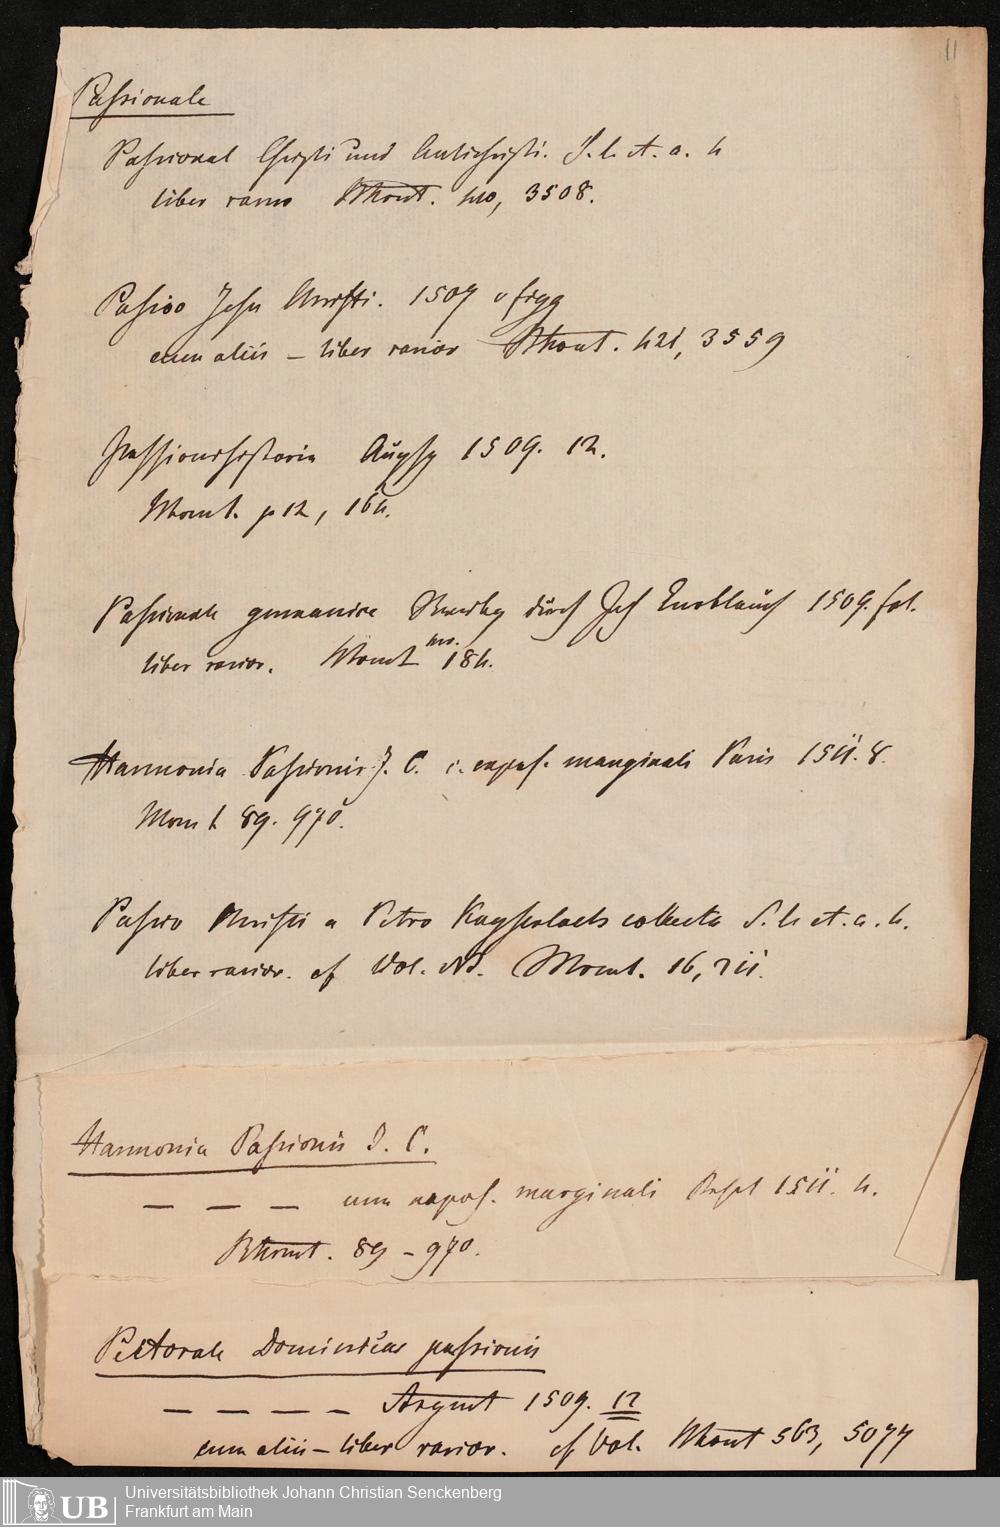 11
Passionale
Passional Christi und Antichristi. S. l. et. a. 4
liber rarus 3508.
Passio Jesu Christi. 1507 c figg
cum aliis – liber rarior 421, 3559
Passionshistoria Augsp 1509. 12.
p 12, 164.
Passionale germanice durch Joh Knoblauch 1509. fol.
liber rarior. no. 184.
Harmonia Passionis J. C. c. expos. marginali Paris 1511. 8.
89. 970.
Passio Christi a Petro collecta S. l. et. a. 4.
liber rarior. cf Vol. 16, 211.
Harmonia Passionis J. C.
— — — cum expos. marginali 1511. 4.
89 – 970.
Pectorale Dominicae passionis
— — — — Argent 1509. 12
cum aliis – liber rarior. cf Vol. 563, 5077
UB Universitätsbibliothek Johann Christian Senckenberg
Frankfurt am Main